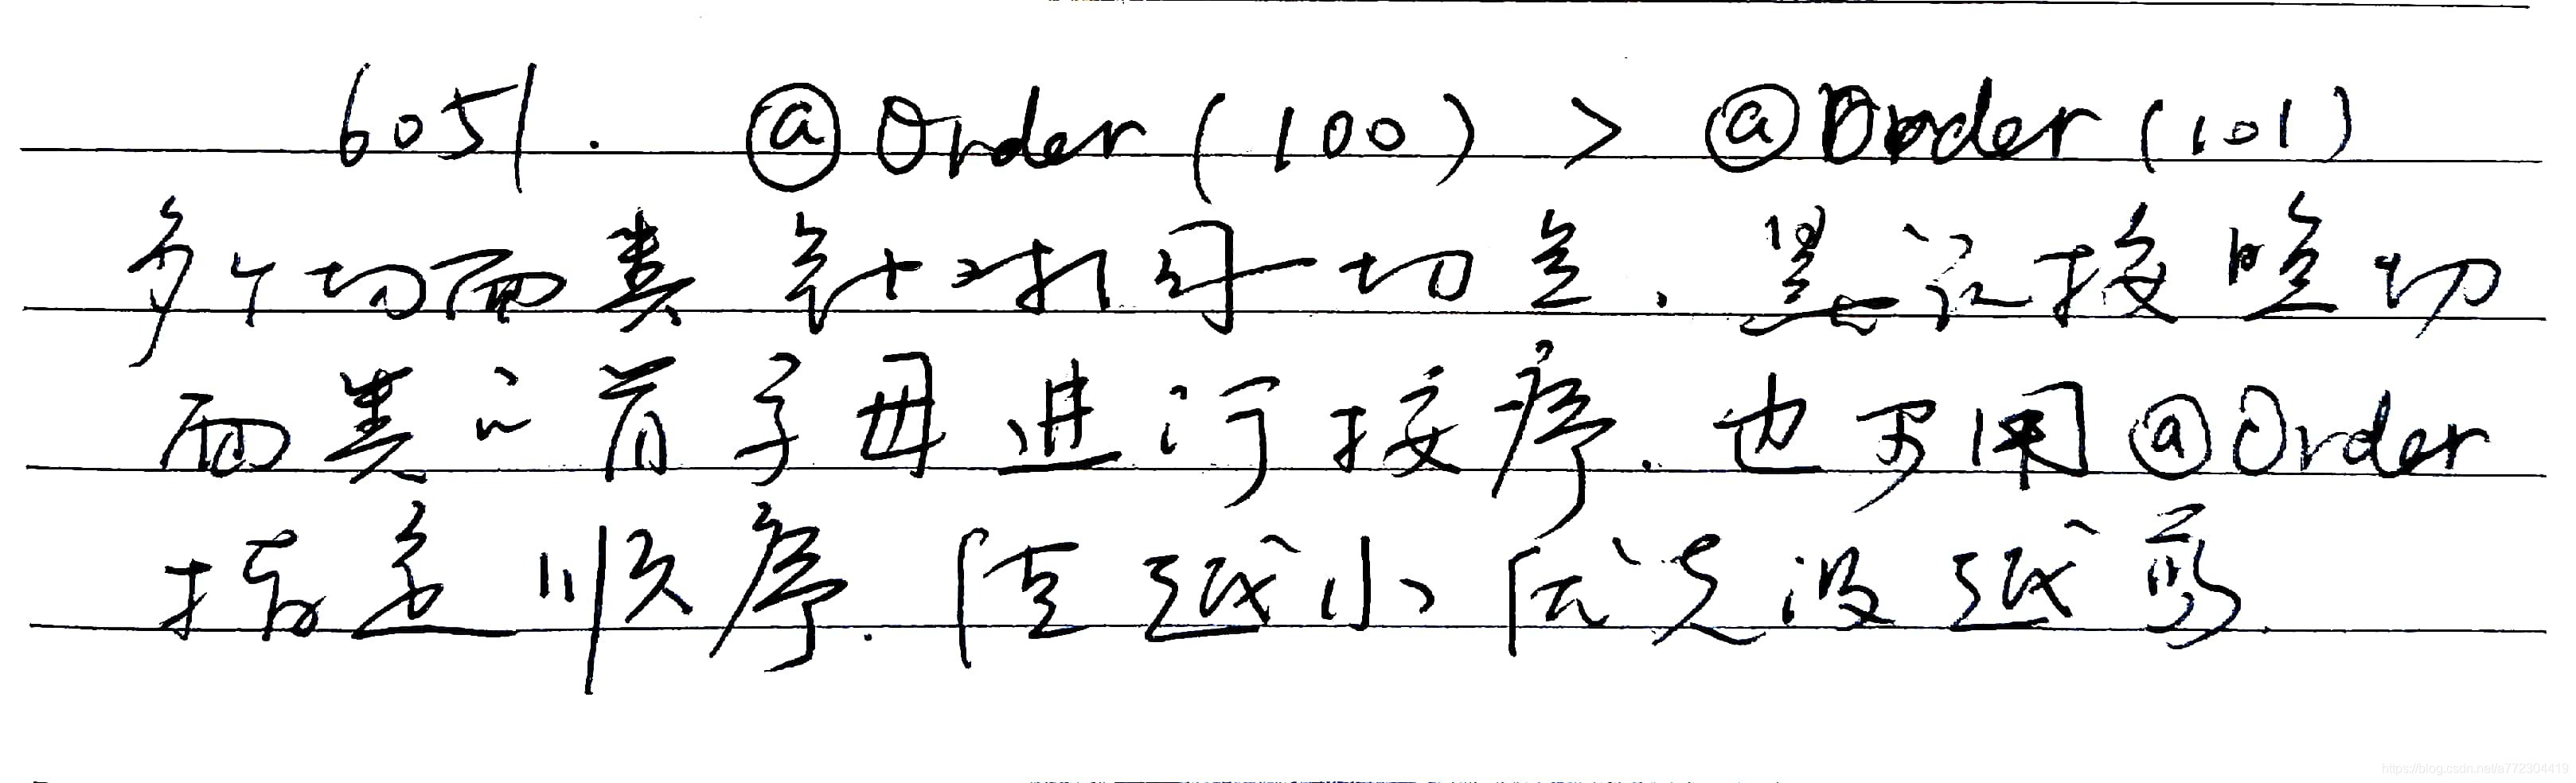 6051. @Order(100) > @Order(101)
多个切面类针对同一切点.默认按照切
面类的首字母进行排序.也可用@Order
指定顺序.值越小优先级越高
https://blog.csdn.net/a772304419